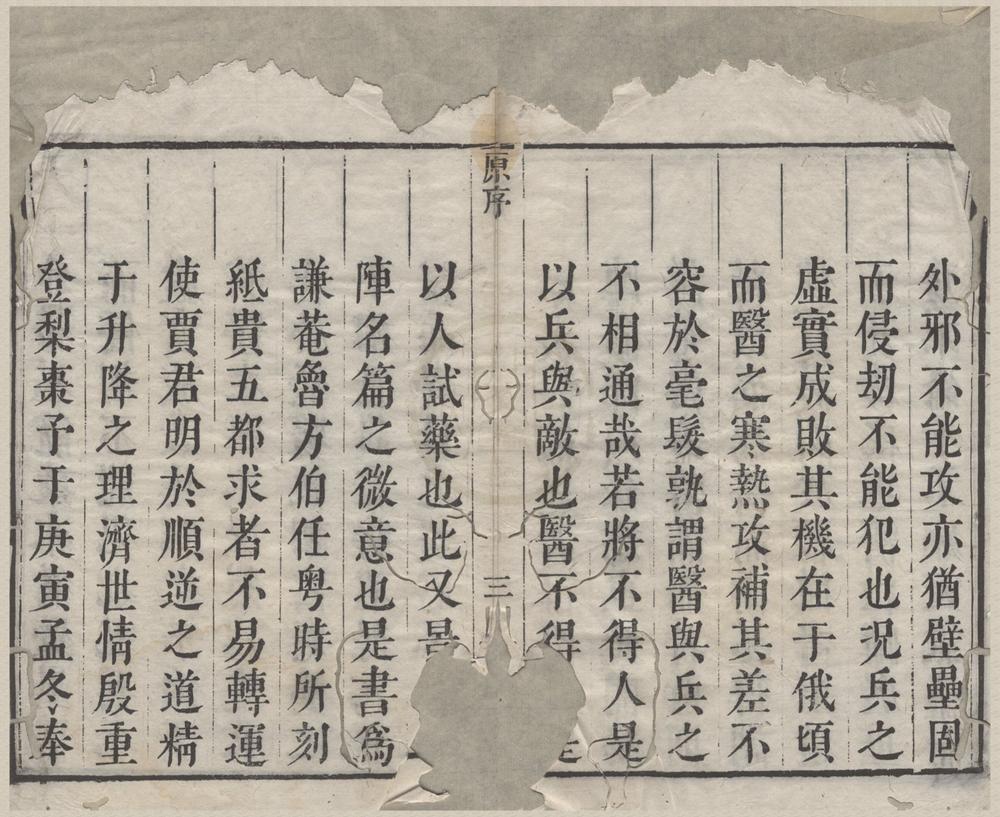 外邪不能攻亦猶壁壘固
而侵刧不能犯也況兵之
虛實成敗其機在于俄頃
而醫之寒熱攻補其差不
容於毫髮孰謂醫與兵之
不相通哉若將不得人是
以兵與敵也醫不得
原序
三
以人試藥也此又
陣名篇之微意也是書爲
謙菴魯方伯任粤時所刻
紙貴五都求者不易轉運
使賈君明於順逆之道精
于升降之理濟世情殷重
登梨棗予于庚寅孟冬奉